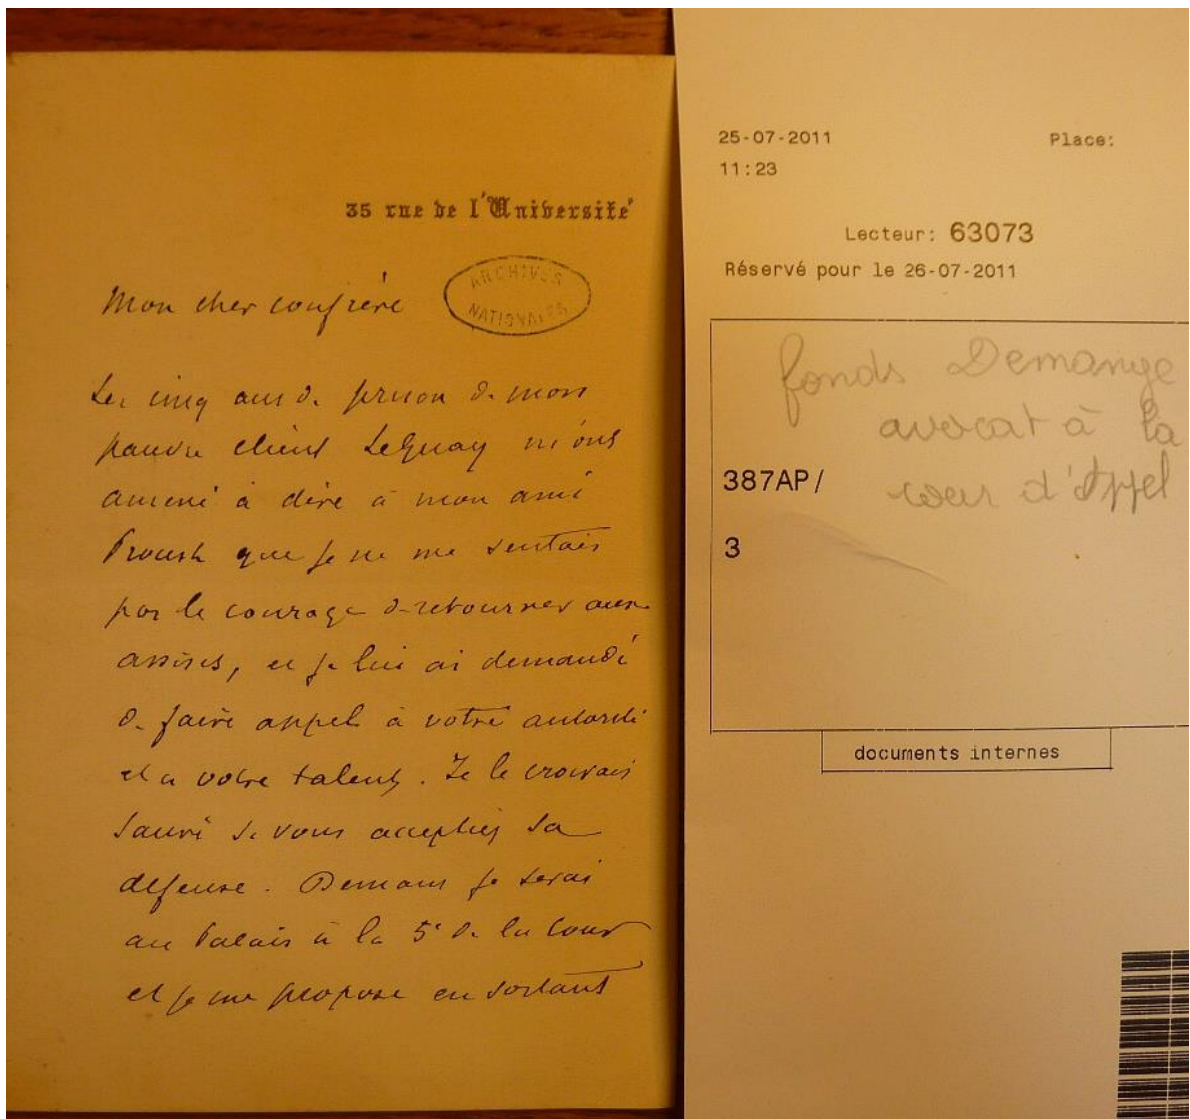 35 rue de l'Université
ARCHIVES
NATIONALES
Mon cher confrère
Les cinq ans de prison de mon
pauvre client LeGuay m'ont
amené à dire à mon ami
Proust que je ne me sentais
pas le courage de retourner aux
assises, et je lui ai demandé
de faire appel à votre autorité
et à votre talent. Je le croirais
sauvé si vous acceptiez sa
défense. Demain je serai
au Palais à la 5e de la Cour
et je me propose en sortant
25-07-2011 Place:
11:23
Lecteur: 63073
Réservé pour le 26-07-2011
fonds Demange
avocat à la
cour d'Appel
387AP/
3
documents internes